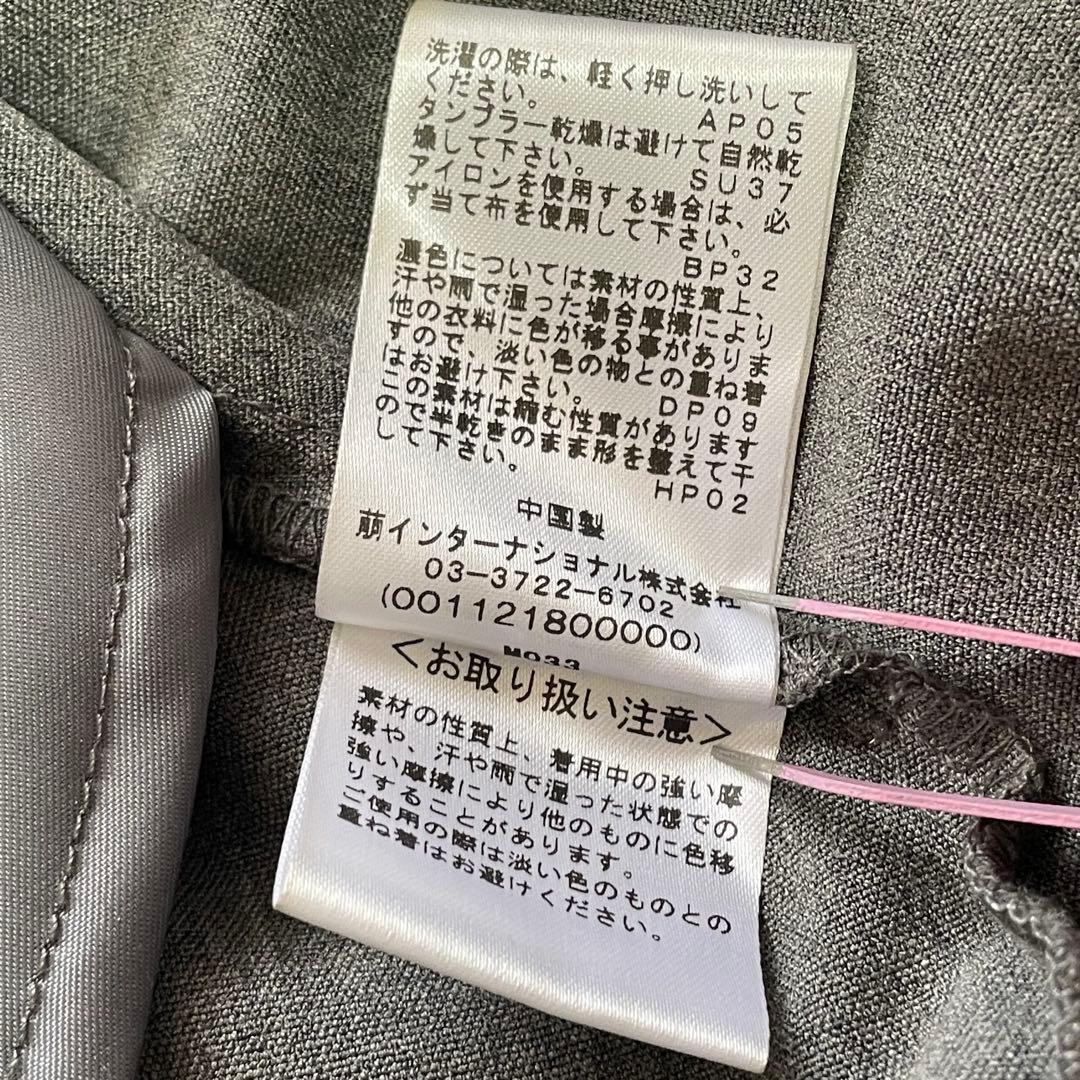 洗濯の際は、軽く押し洗いして
ください。 AP05
タンブラー乾燥は避けて自然乾
燥して下さい。 SU37
アイロンを使用する場合は、必
ず当て布を使用して下さい。
BP32
濃色については素材の性質上、
汗や雨で湿った場合摩擦により
他の衣料に色が移る事がありま
すので、淡い色の物との重ね着
はお避け下さい。 DP09
この素材は縮む性質があります
ので半乾きのまま形を整えて干
して下さい。 HP02
中国製
萠インターナショナル株式会社
03-3722-6702
(001121800000)
M033
<お取り扱い注意>
素材の性質上、着用中の強い摩
擦や、汗や雨で湿った状態での
強い摩擦により他のものに色移
りすることがあります。
ご使用の際は淡い色のものとの
重ね着はお避けください。